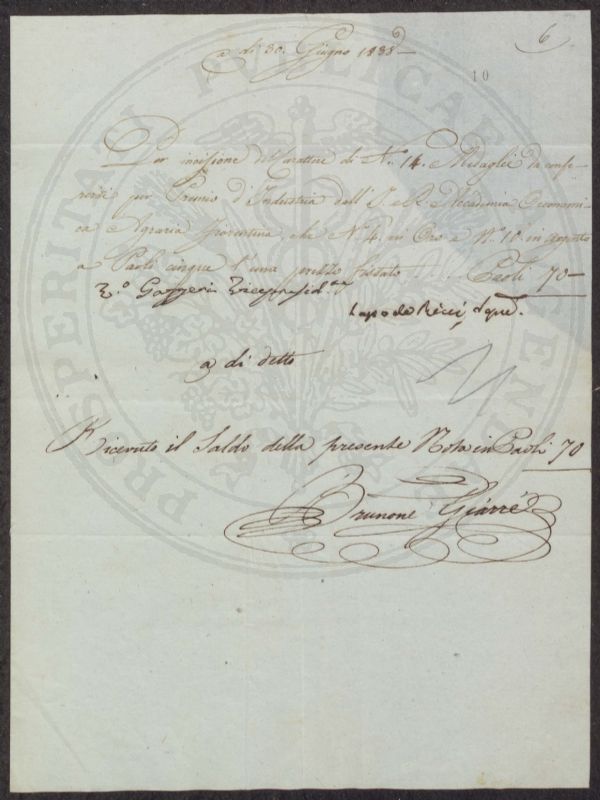 6
a di 30. Giugno 1838
10
Per incisione del Carattere di N.° 14. Medaglie da confe-
rirsi per Premio d'Industria dall'I. e R. Accademia Economi-
ca e Agraria Fiorentina, che N.° 4. in Oro e N.° 10 in argento
a Paoli cinque l'una prezzo fissato . . . Paoli 70—
V.° Gazzeri Vicepresid.te
Lapo de Ricci,
a di detto
Ricevuto il Saldo della presente Nota in Paoli 70
Brunone Giarrè
PROSPERITATI PUBLICAE AUGENDAE